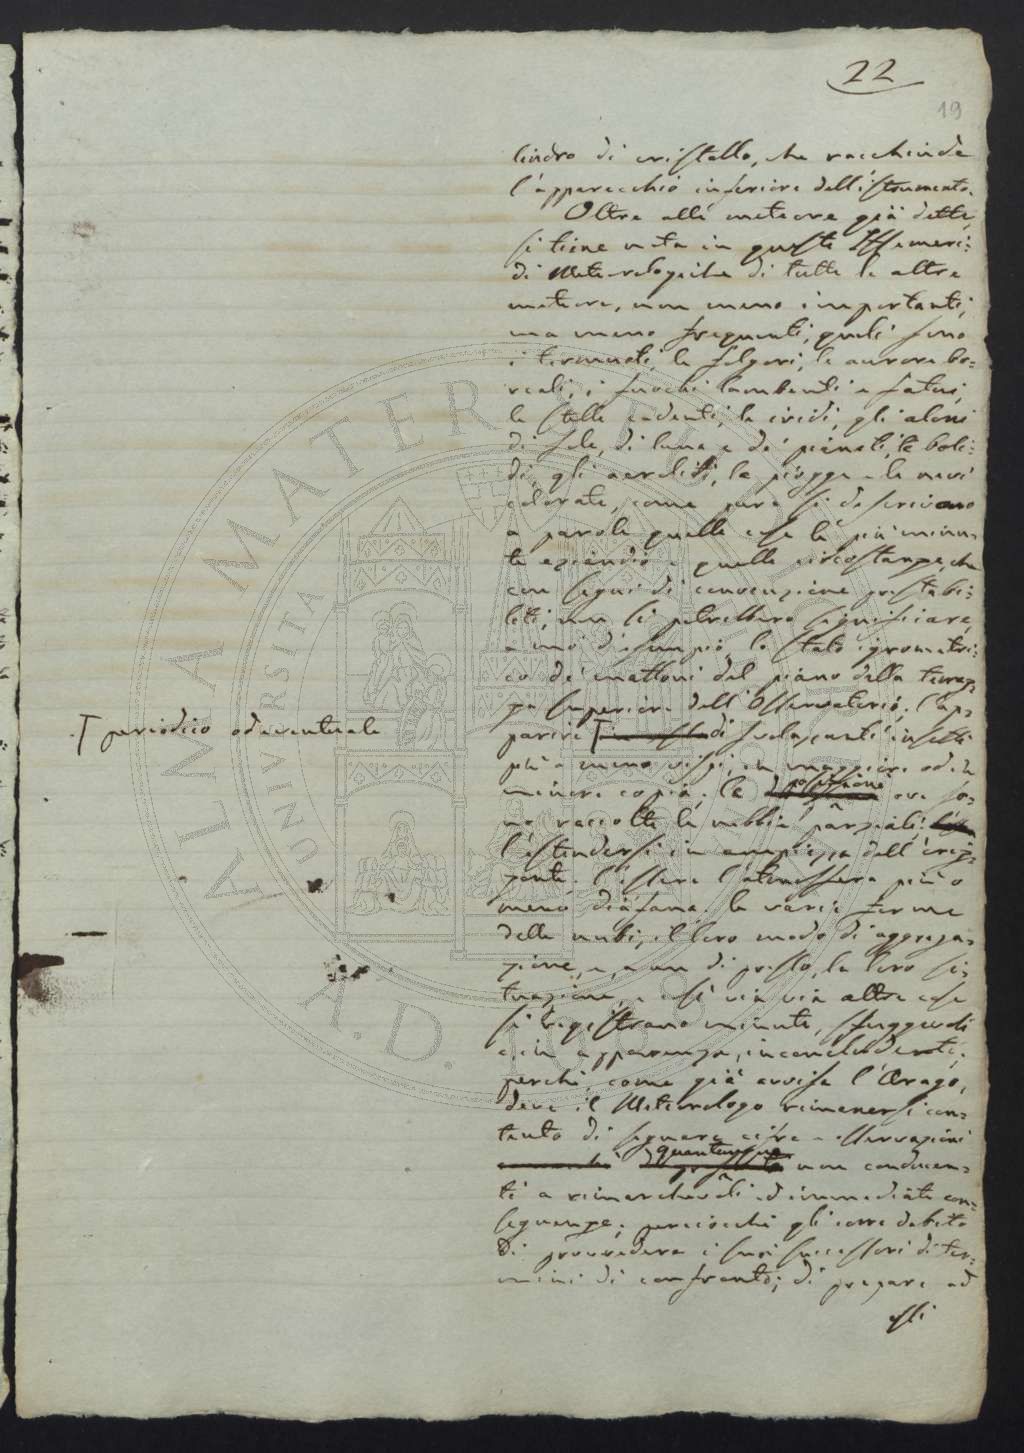 22
19
lindro di cristallo, che racchiude
l'apparecchio inferiore dell'istrumento.
Oltre alle meteore già dette,
si tiene nota in queste Effemeri:
di Meteorologiche di tutte le altre
meteore, non meno importanti,
ma meno frequenti, quali sono
i terremoti, le folgori, le aurore bo:
reali, i fuochi lambenti e fatui,
le stelle cadenti, le iridi, gli aloni
di sole, di luna e de' pianeti, le boli:
di, gli aeroliti, le piogge e le nevi
colorate, come pure si descrivono
a parole quelle cose le più minu:
te eziandio e quelle circostanze, che
con segni di convenzione prestabi:
liti, non si potrebbero significare,
a mo' d'esempio, lo stato igrometri:
co de' mattoni del piano della terraz:
za superiore dell'Osservatorio; l'ap:
parire di svolazzanti insetti
periodico od eventuale
più o meno vispi, in maggiore od in
minore copia; la posizione ove so:
no raccolte le nebbie parziali;
l'estendersi in ampiezza dell'oriz:
zonte; l'essere l'atmosfera più o
meno diafana; le varie forme
delle nubi, il loro modo di aggrega:
zione, e, a un di presso, la loro si:
tuazione, e così via via altre cose
si registrano minute, sfuggevoli
e, in apparenza, inconcludenti;
perchè, come già avvisa l'Arago,
deve il Meteorologo rimanersi con:
tento di segnare cifre e osservazioni
quantunque non conducen:
ti a rimarchevoli ed immediate con:
seguenze; perciocchè gli corre debito
di provvedere i suoi successori di ter:
mini di confronto; di preparare ad
essi
ALMA MATER STUDIORUM
UNIVERSITA
A.D. 1088